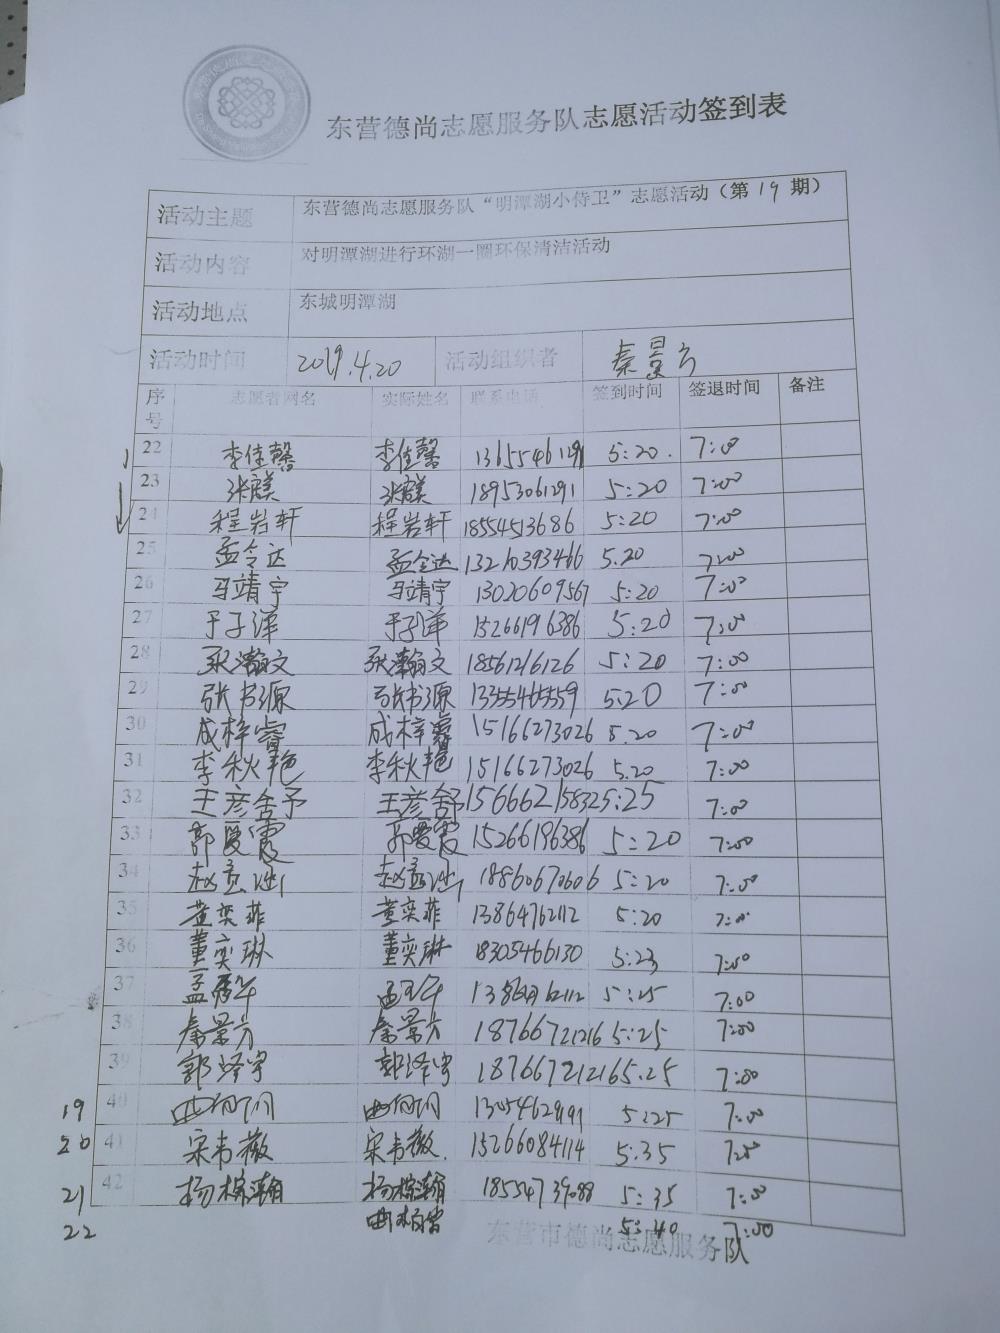 东营德尚志愿服务队志愿活动签到表
活动主题 东营德尚志愿服务队“明潭湖小侍卫”志愿活动（第19期）
活动内容 对明潭湖进行环湖一圈环保清洁活动
活动地点 东城明潭湖
活动时间 2019.4.20 活动组织者 秦景方
序号 志愿者网名 实际姓名 联系电话 签到时间 签退时间 备注
22 李佳馨 李佳馨 13655461291 5:20. 7:00
23 18953061291 5:20 7:00
24 程岩轩 程岩轩 18554513686 5:20 7:00
25 孟令达 孟令达 13210393466 5.20 7:00
26 马靖宇 马靖宇 13020609567 5:20 7:00
27 于子洋 于子洋 15266196386 5:20 7:00
28 耿瀚文 耿瀚文 18561216126 5:20 7:00
29 张书源 张书源 13355465559 5:20 7:00
30 成梓睿 成梓睿 15166273026 5.20 7:00
31 李秋艳 李秋艳 15166273026 5.20 7:00
32 王彦舍予 王彦舒 15666215832 5:25 7:00
33 郭爱霞 郭爱霞 15266196386 5:20 7:00
34 赵孟涵 赵孟涵 18860670606 5:20 7:00
35 董奕菲 董奕菲 13864762112 5:20 7:00
36 董奕琳 董奕琳 18305466130 5:23 7:00
37 5:25 7:00
38 秦景方 秦景方 18766721216 5:25 7:00
39 郭泽宇 郭泽宇 18766721216 5.25 7:00
19 40 13054629191 5:25 7:00
20 41 宋韦薇 宋韦薇. 15266084114 5:35 7:00
21 42 杨棕瀚 杨棕瀚 18554739088 5:35 7:00
22 5:40 7:00
东营市德尚志愿服务队